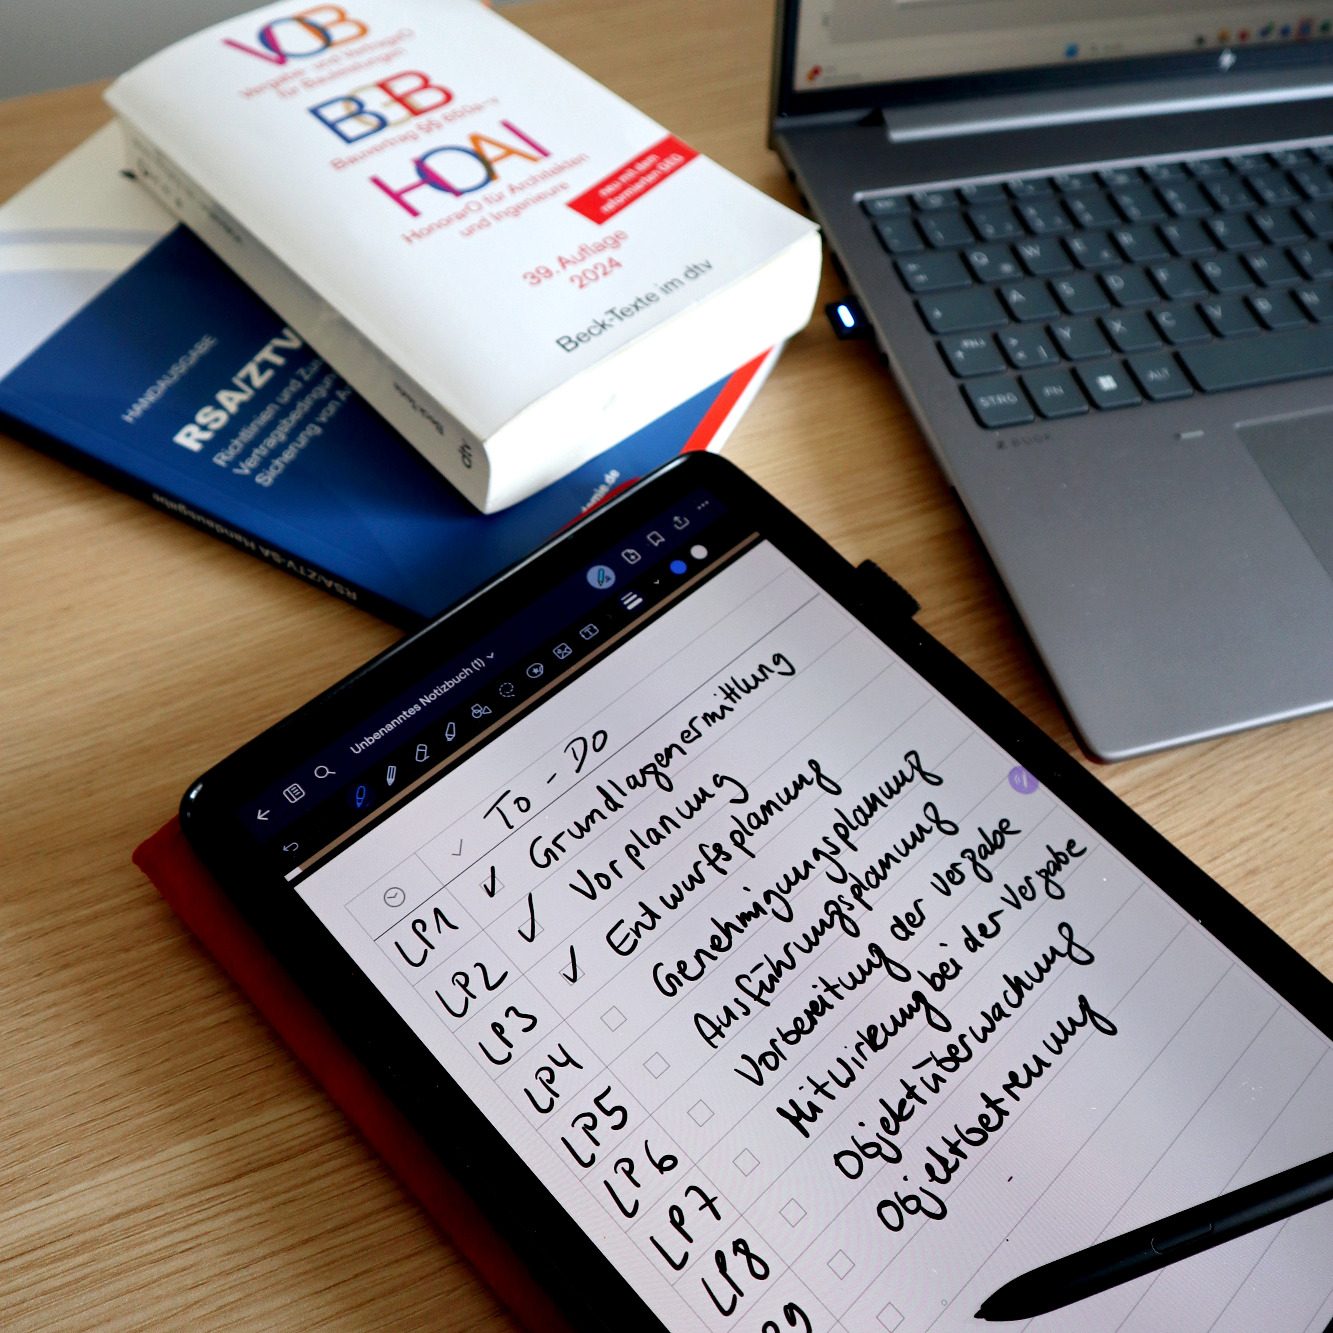 VOB
Vergabe- und VertragsO
für Bauleistungen
BGB
Bauvertrag §§ 650a-v
HOAI
HonorarO für Architekten
und Ingenieure
neu mit dem
reformierten GEG
39. Auflage
2024
Beck-Texte im dtv
Beck-Texte
dtv
HANDAUSGABE
RSA/ZTV
Richtlinien und
Vertragsbedingun
Sicherung von A
RSA/ZTV-SA Handausgabe
Unbenanntes Notizbuch (1)
To-Do
LP1 Grundlagenermittlung
LP2 Vorplanung
LP3 Entwurfsplanung
LP4 Genehmigungsplanung
LP5 Ausführungsplanung
LP6 Vorbereitung der Vergabe
LP7 Mitwirkung bei der Vergabe
LP8 Objektüberwachung
P9 Objektbetreuung
Q W
A S D F G H
Y X C V B N
STRG FN ALT
ZBOOK